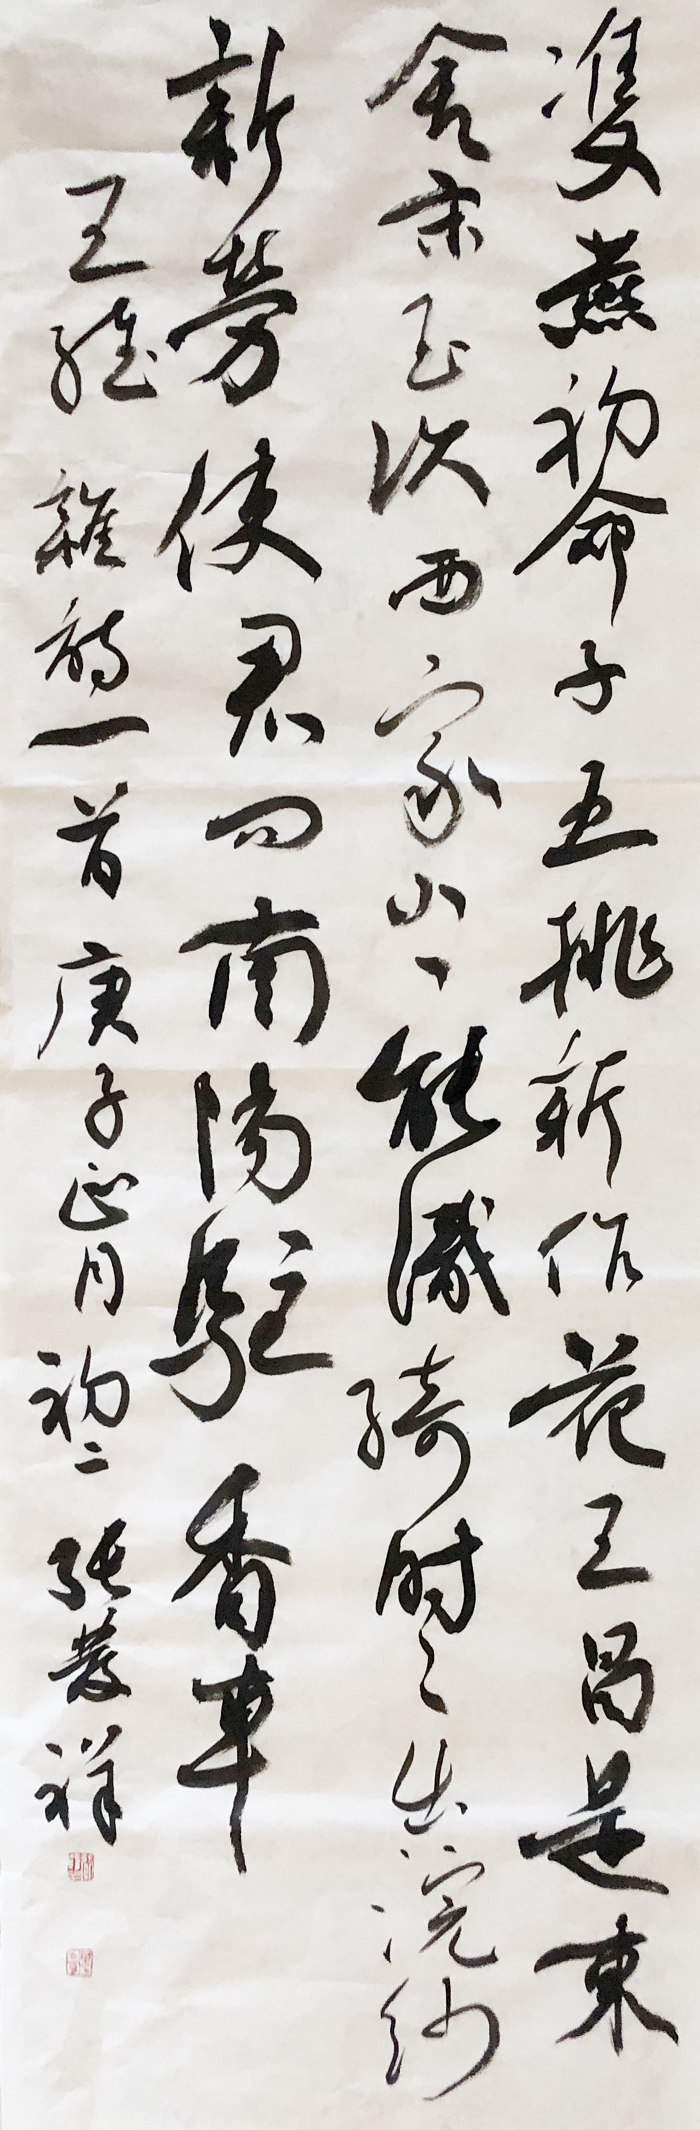 雙燕初命子五桃新作花王昌是東
舍宋玉次西家小小能識綺时时出浣紗
新勞使君问南陽駐香車
王維 雜詩一首 庚子正月初二 張發祥